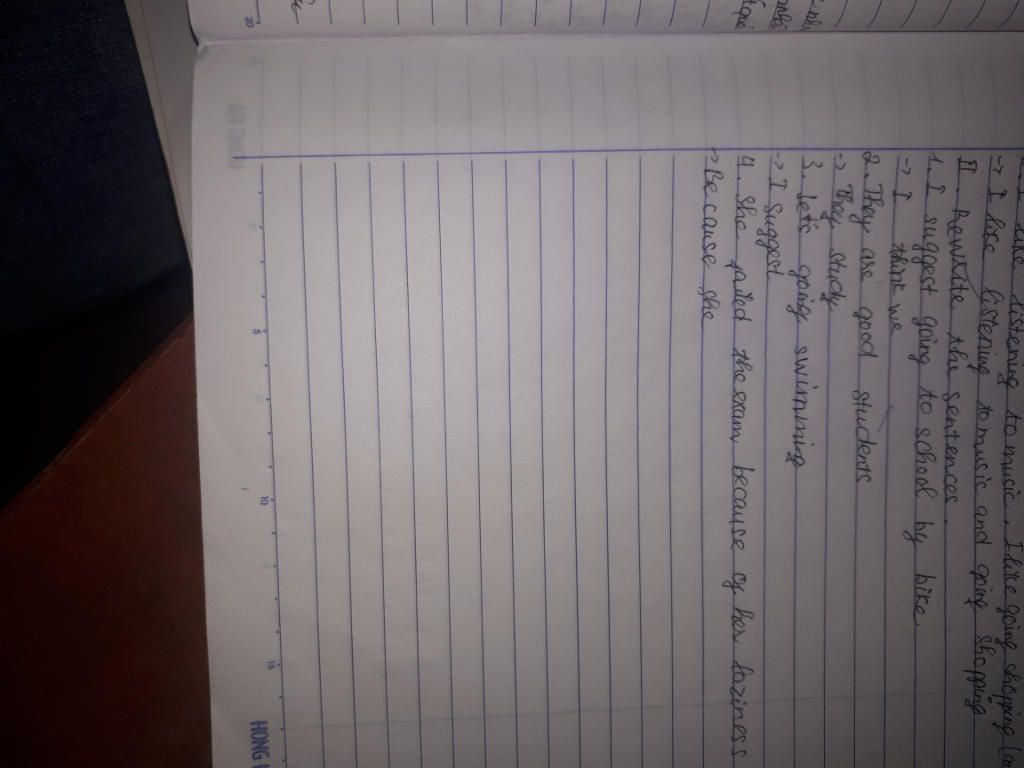 I like listening to music. I like going shoping
-> I like listening to music and going shopping
II. Rewrite the sentences.
1. I suggest going to school by bike
-> I think we
2. They are good students
-> They study
3. let's going swimming
-> I suggest
4. She failed the exam, because of her laziness
-> Because she
20
5
10
15
HONG